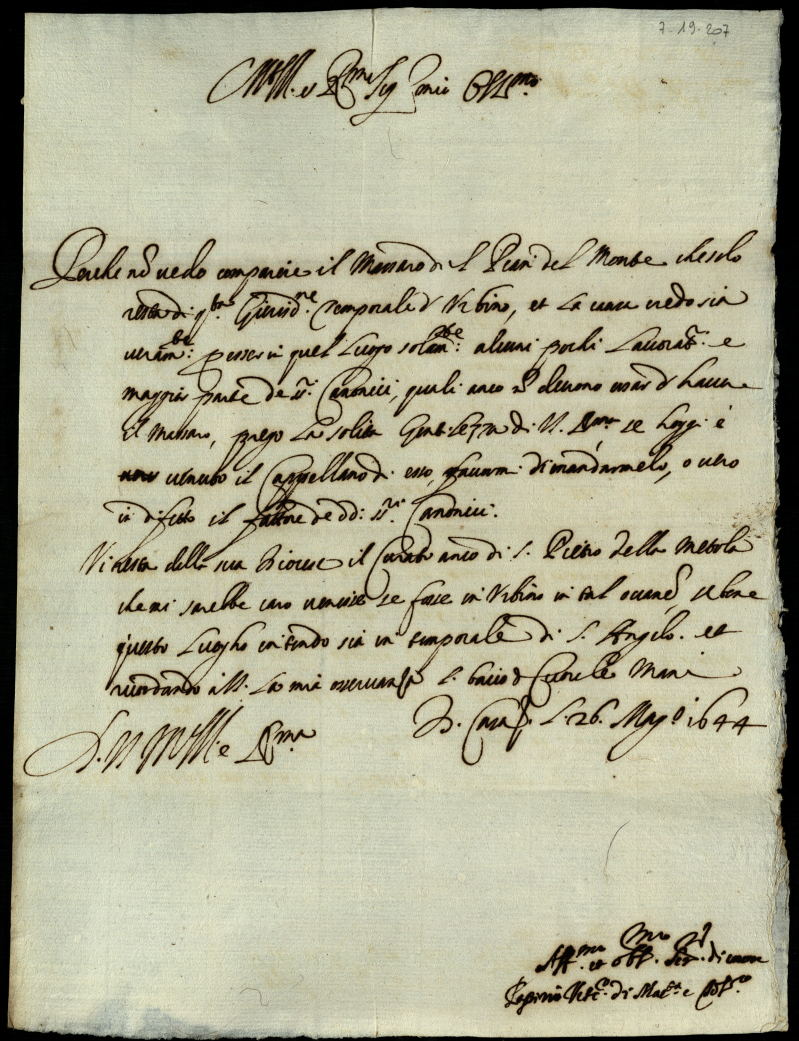 7-19-207
M.to Ill.re e R.mo Sig.r Oss.mo
Perche nõ vedo comparire il Massaro di S. Pian del Monte che solo
resta di q.ta Giurisd.ne temporale d'Urbino, et la causa credo sia
veram.te p esser in quel luogo solam.te alcuni pochi Lavorat.i e
maggior parte de SS.ri Canonici, quali anco nõ devono usar d'haver
il Massaro, prego la solita Gentilezza di V. S. R.ma se hoggi è
venuto il Cappellano di esso, favorirmi di mandarmelo, o vero
in difetto il fattore de dd.i SS.ri Canonici.
Vi resta della sua Diocese il Curato anco di S. Pietro della Metola
che mi sarebbe caro venisse se fosse in Urbino in tal occane, sebene
questo Luogho intendo sia in temporale di S. Angelo. et
ricordando à V.S. la mia osservanza le bacio di Cuore le Mani
Di Casa li 26. Mag.o 1644
D. V. S. M.to Ill.re e R.ma
Aff.mo et obl. Ser.re di cuore
Vesc.o di Mac.ta e